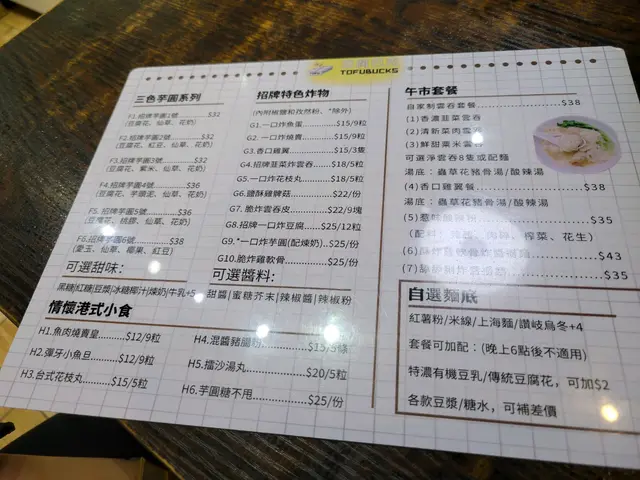 TOFUBUCKS
三色芋圓系列
F1.招牌芋圓1號 $32
(豆腐花、仙草、花奶)
F2.招牌芋圓2號 $32
(豆腐花、紅豆、花奶)
F3.招牌芋圓3號 $32
(豆腐花、紫米、仙草、花奶)
F4.招牌芋圓4號 $36
(豆腐花、芋頭泥、仙草、花奶)
F5.招牌芋圓5號 $36
(豆腐花、桃膠、仙草、花奶)
F6.招牌芋圓6號 $38
(愛玉、仙草、椰果、紅豆)
可選甜味：
黑糖|紅糖|豆漿|冰糖椰汁|煉奶|牛乳+5
招牌特色炸物
(內附椒鹽和孜然粉、*除外)
G1.一口炸魚蛋 $15/9粒
G2.一口炸燒賣 $15/9粒
G3.香口雞翼 $15/3隻
G4.招牌韮菜炸雲吞 $18/5粒
G5.一口炸花枝丸 $18/5粒
G6.鹽酥雞髀菇 $22/份
G7.脆炸雲吞皮 $22/9塊
G8.招牌一口炸豆腐 $25/12粒
G9.*一口炸芋圓(配煉奶) $25/份
G10.脆炸雞軟骨 $25/份
可選醬料：
甜醬|蜜糖芥末|辣椒醬|辣椒粉
情懷港式小食
H1.魚肉燒賣皇 $12/9粒
H2.彈牙小魚旦 $12/9粒
H3.台式花枝丸 $15/5粒
H4.混醬豬腸粉 $15/5條
H5.擂沙湯丸 $20/5粒
H6.芋圓糖不甩 $25/份
午市套餐
自家制雲吞套餐 $38
(1)香濃韮菜雲吞
(2)清新菜肉雲吞
(3)鮮甜粟米雲吞
可選淨雲吞8隻或配麵
湯底：蟲草花豬骨湯/酸辣湯
(4)香口雞翼餐 $38
湯底：蟲草花豬骨湯/酸辣湯
(5)惹味酸辣粉 $35
(配料：、肉碎、榨菜、花生)
(6) $43
(7) $35
自選麵底
紅薯粉/米線/上海麵/讚岐烏冬+4
套餐可加配：(晚上6點後不適用)
特濃有機豆乳/傳統豆腐花，可加$2
各款豆漿/糖水，可補差價